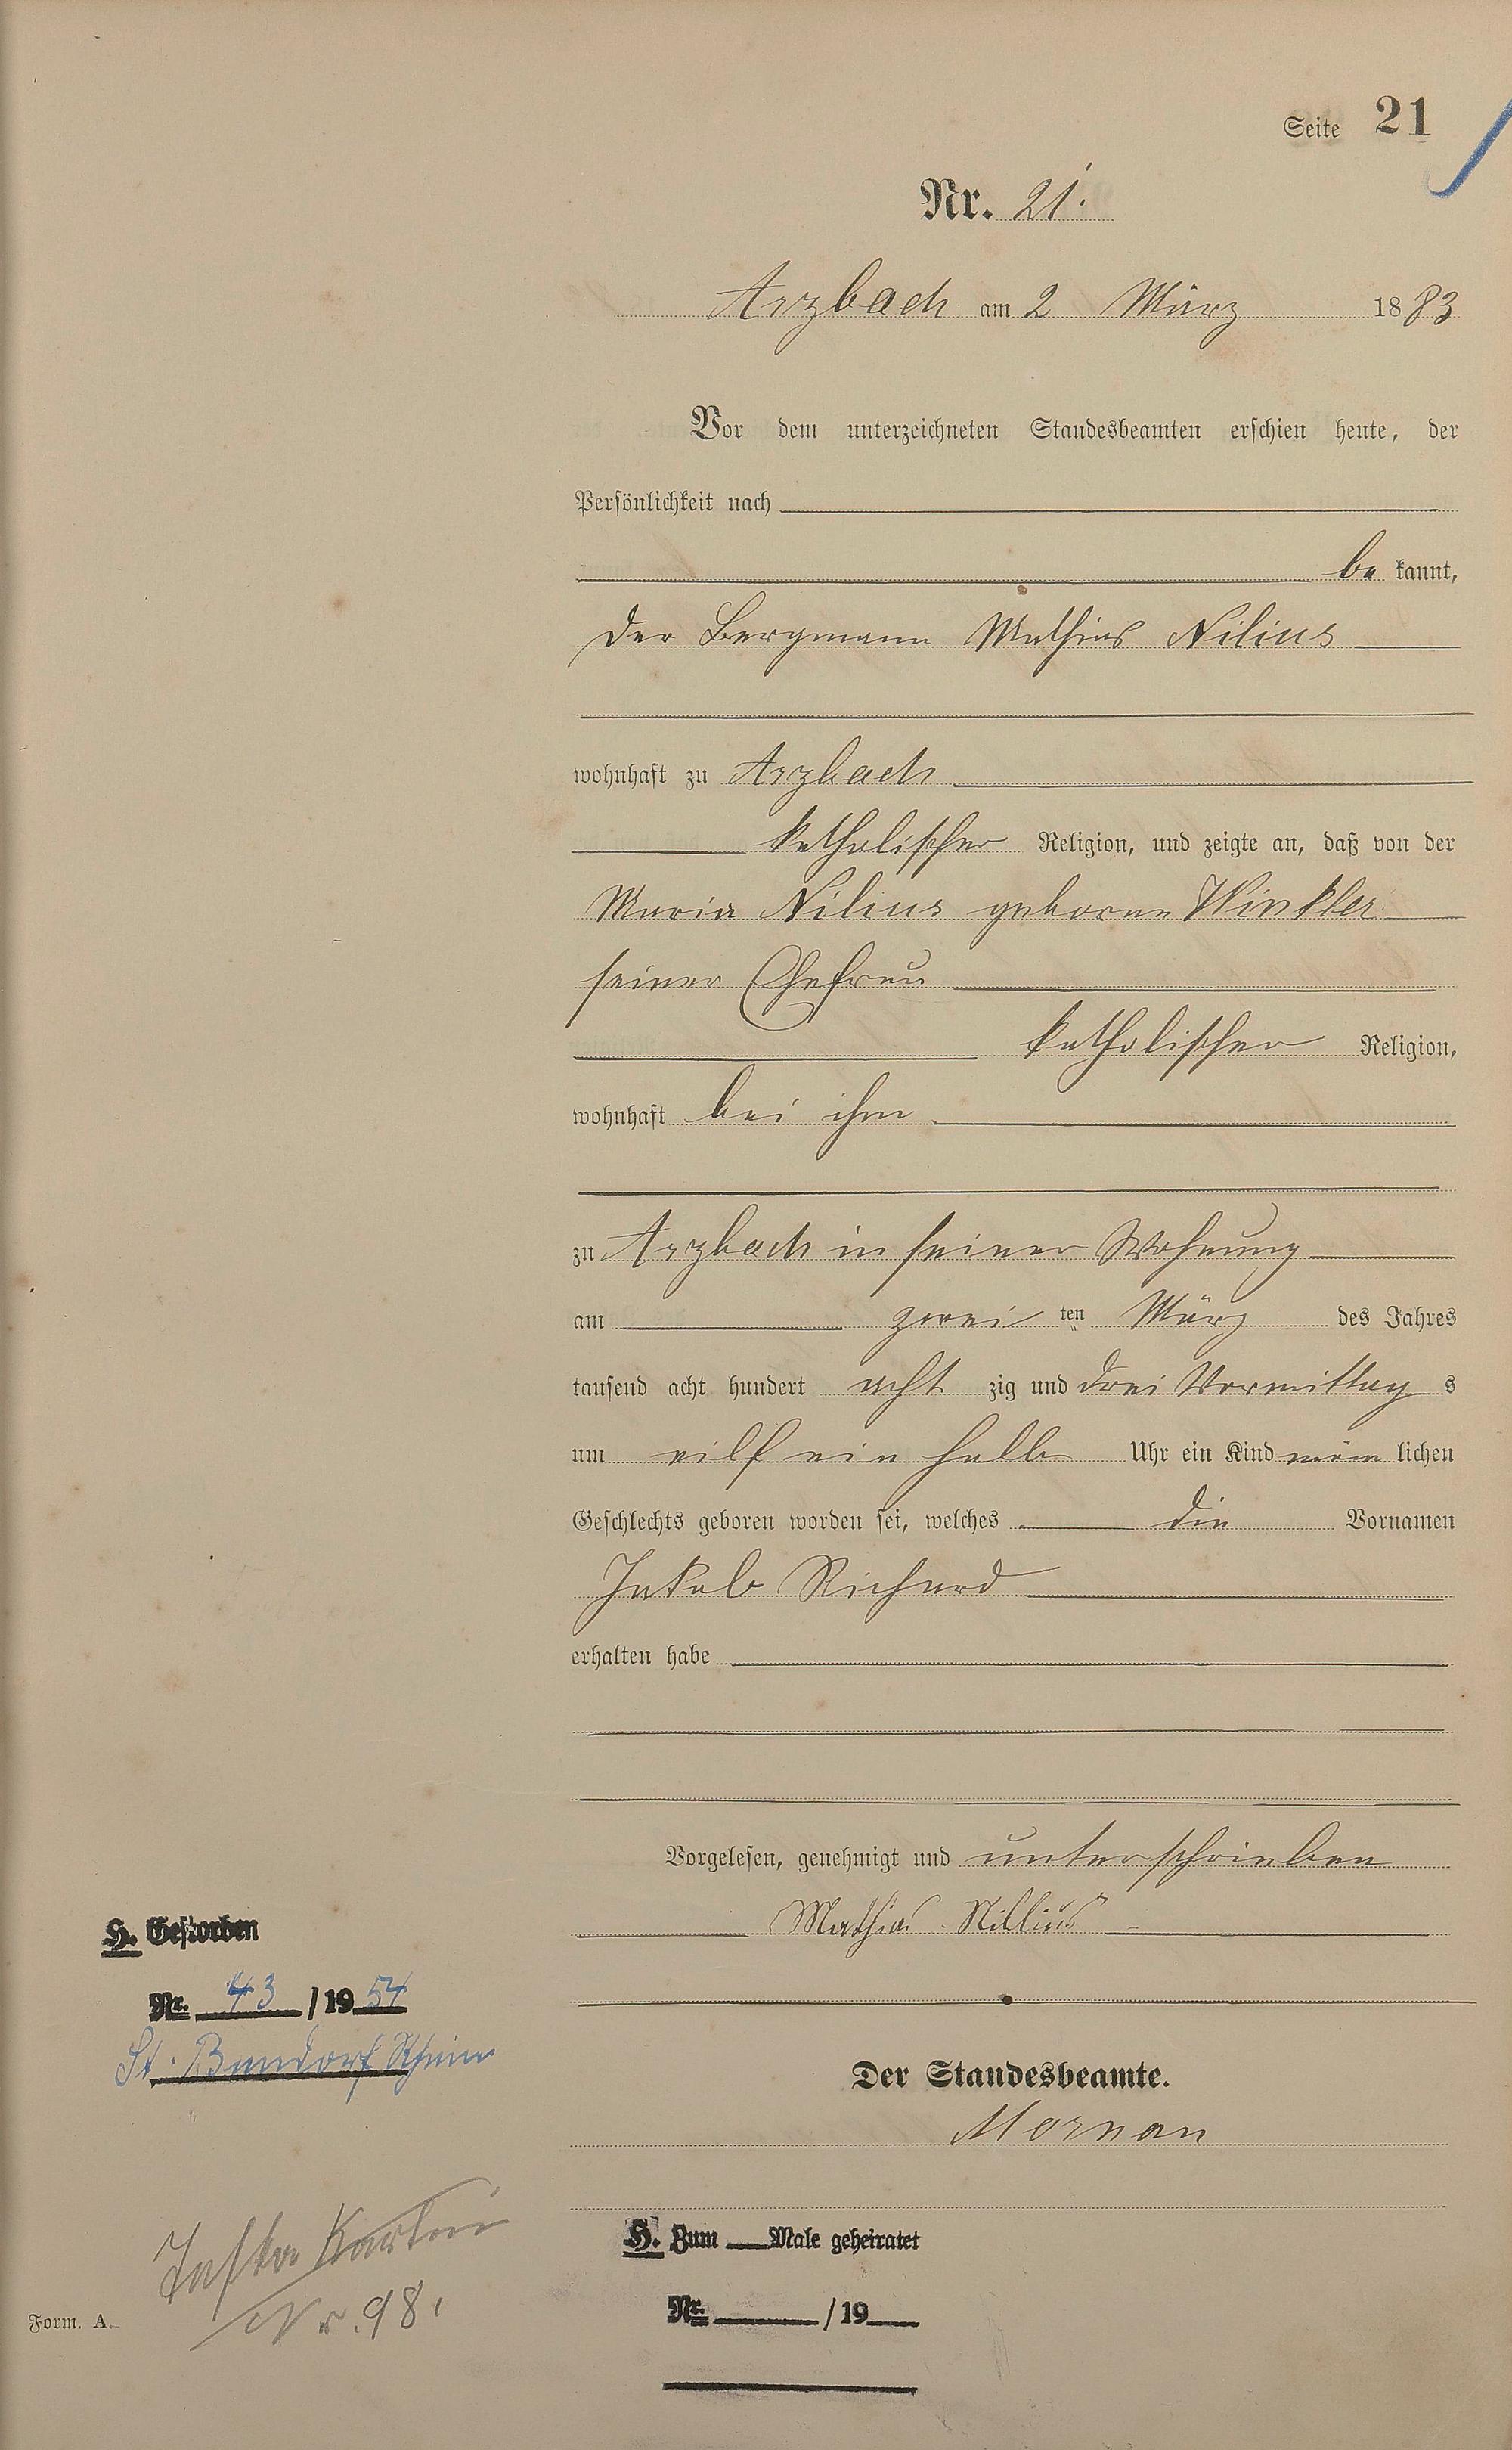 Seite 21
Nr. 21.
Arzbach am 2 März 1883
Vor dem unterzeichneten Standesbeamten erschien heute, der
Persönlichkeit nach
be kannt,
der Bergmann Mathias Nilius
wohnhaft zu Arzbach
katholischer Religion, und zeigte an, daß von der
Maria Nilius geborne Winkler
seiner Ehefrau
katholischer Religion,
wohnhaft bei ihm
zu Arzbach in seiner Wohnung
am zwei ten März des Jahres
tausend acht hundert acht zig und drei Vormittag s
um eilf ein halb Uhr ein Kind män lichen
Geschlechts geboren worden sei, welches die Vornamen
Jakob Richard
erhalten habe
Vorgelesen, genehmigt und unterschrieben
Mathias Nillius
Der Standesbeamte.
H. Gestorben
Nr. 43 /1954
St. Bendorf Rhein
Nr. 98.
H. Zum Male geheiratet
Nr. /19
Form. A.